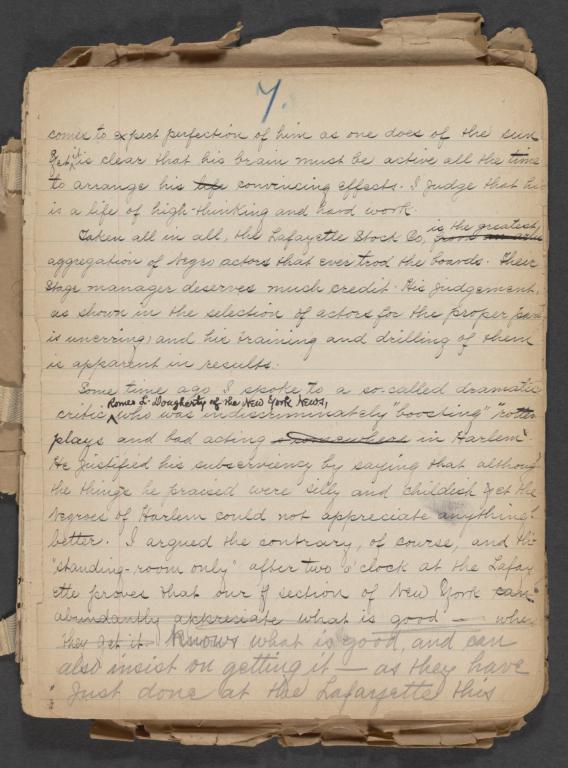 7.
comes to expect perfection of him as one does of the sun
Yet it is clear that his brain must be active all the time
to arrange his life convincing effects. I judge that his
is a life of high-thinking and hard work.
Taken all in all, the Lafayette Stock Co, is the greatest
aggregation of Negro actors that ever trod the boards. Their
stage manager deserves much credit. His judgement,
as shown in the selection of actors for the proper parts
is unerring, and his training and drilling of them
is apparent in results.
Some time ago I spoke to a so-called dramatic
Romeo L. Dougherty of the New York News,
critic who was indiscriminately "boosting" rotten
plays and bad acting somewhere in Harlem.
He justified his subserviency by saying that although
the things he praised were silly and childish yet the
Negroes of Harlem could not appreciate anything
better. I argued the contrary, of course, and the
"standing-room only" after two o'clock at the Lafay-
ette proves that our section of New York can
abundantly appreciate what is good — when
they get it. Knows what is good, and can
also insist on getting it — as they have
just done at the Lafayette this